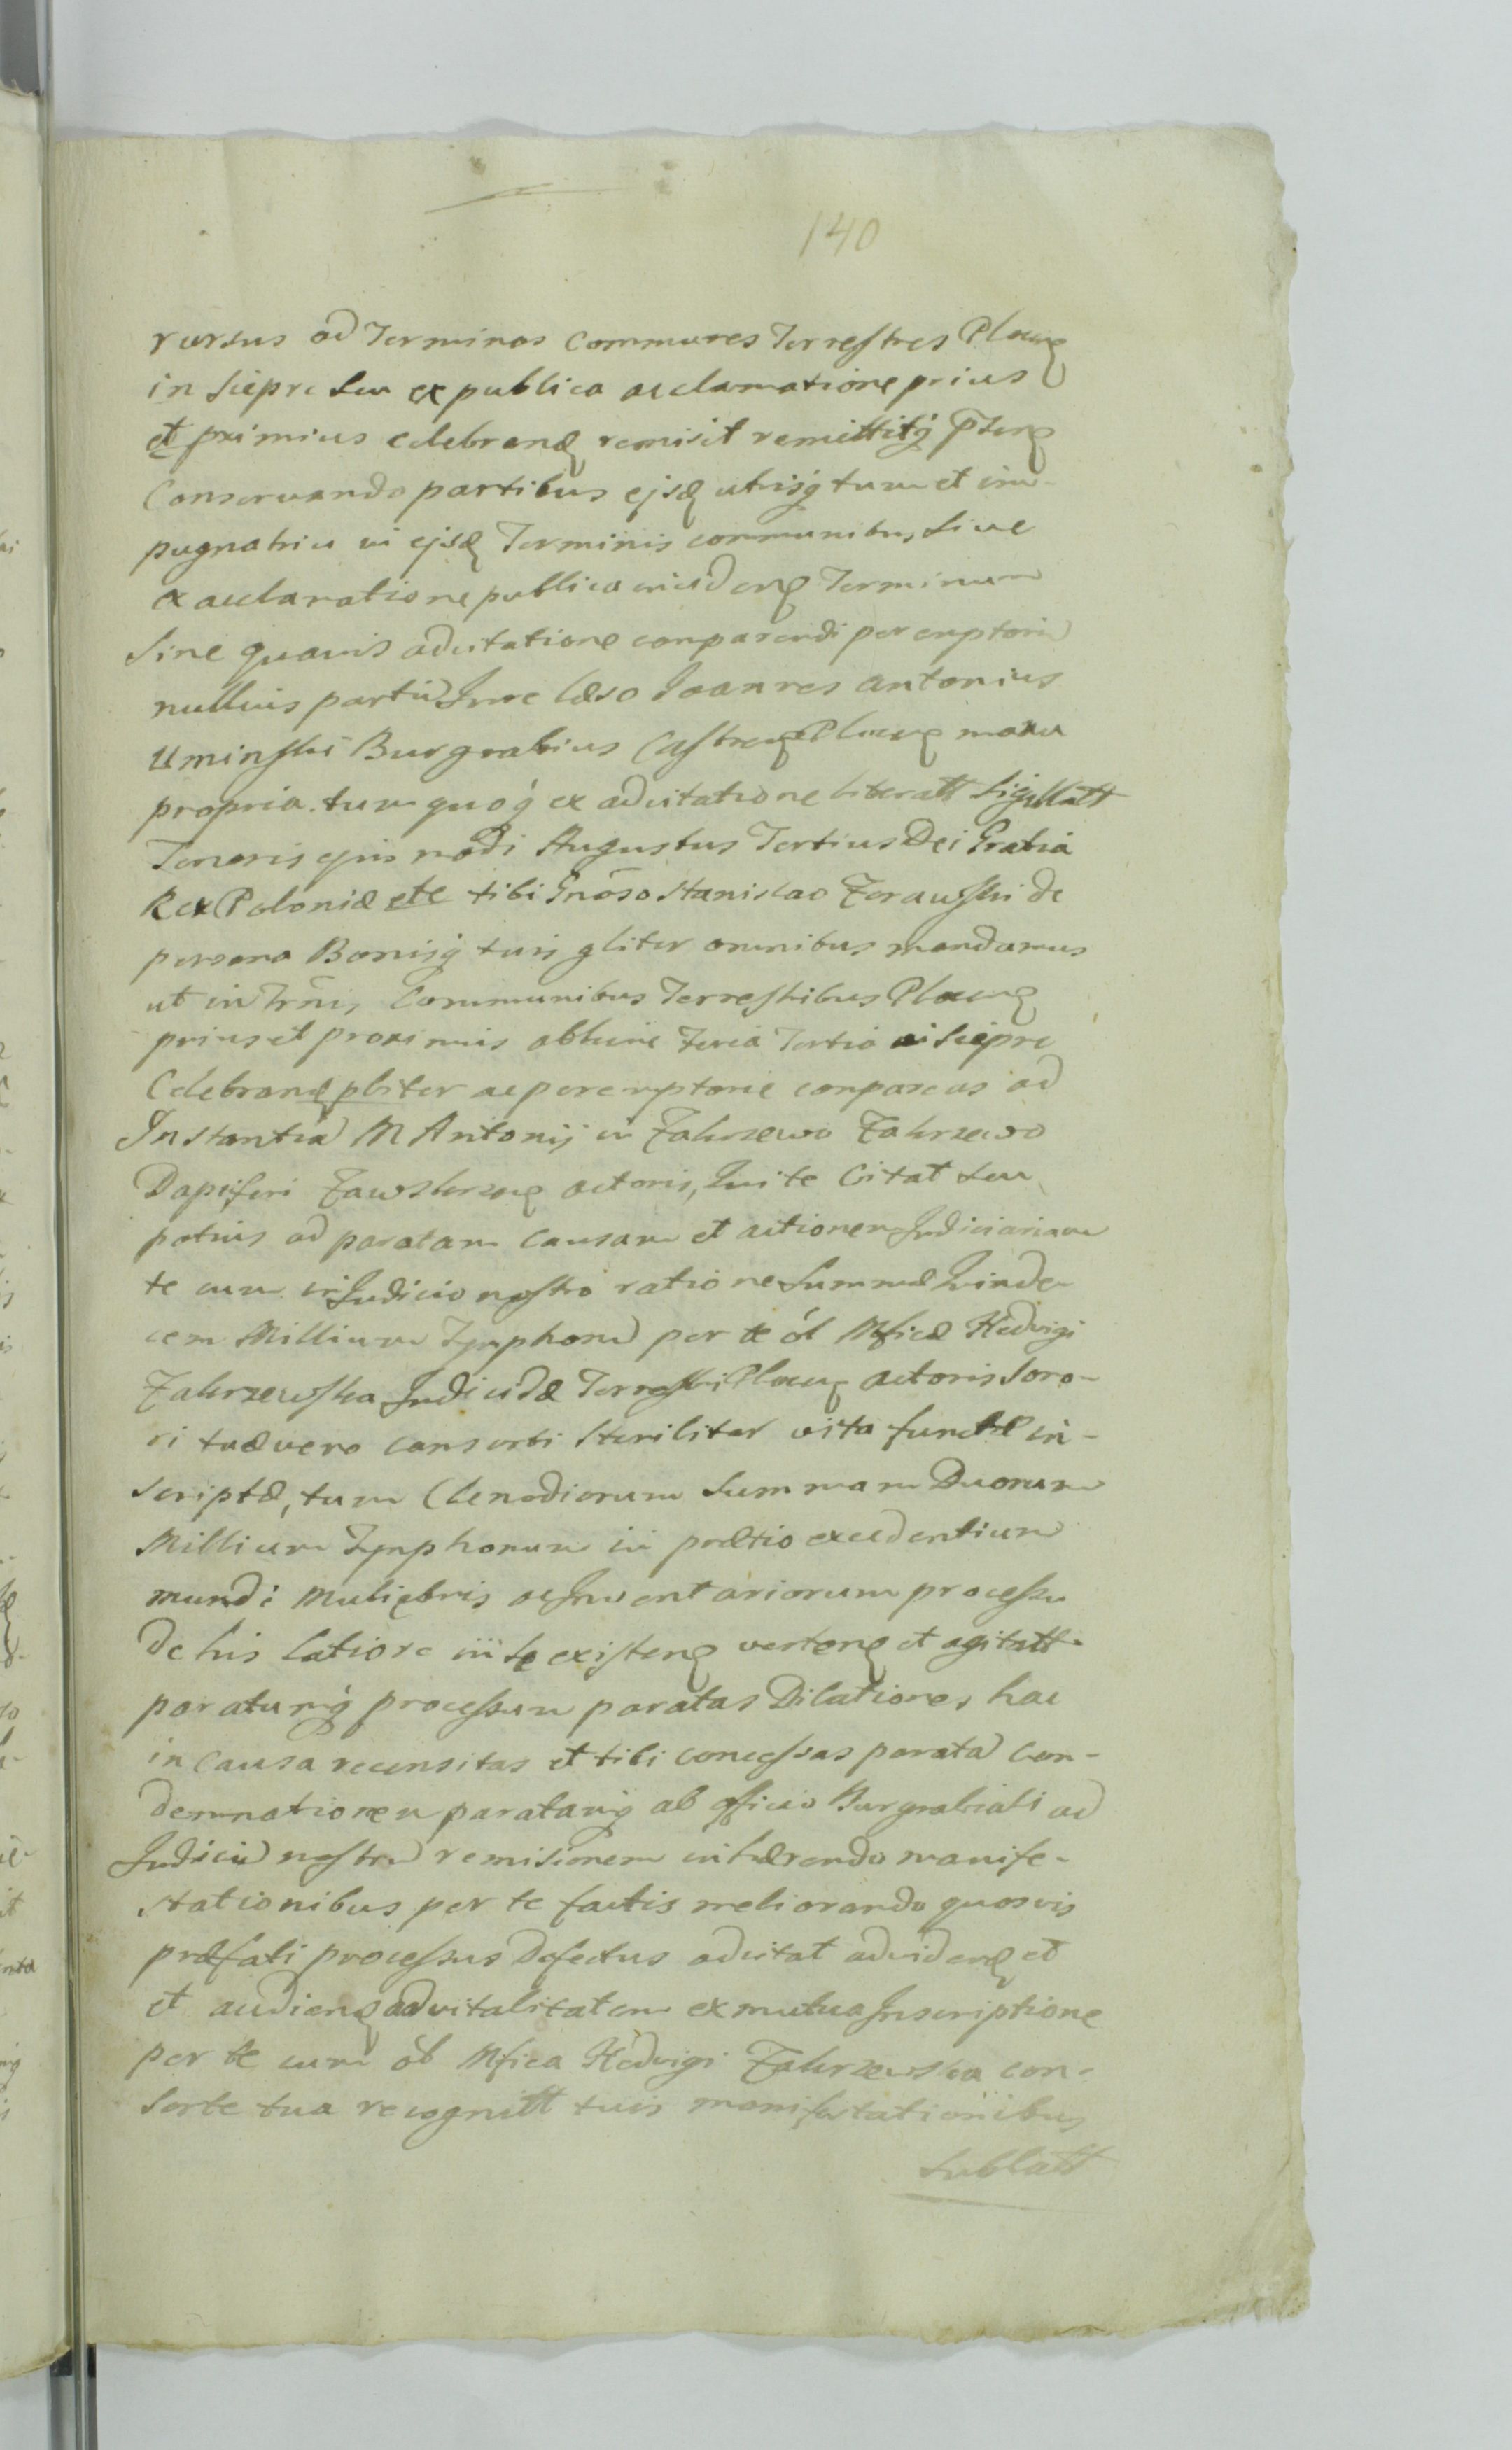 140
rursus ad Terminos Communes Terrestres Plocen
in Siepre seu ex publica acclamatione prius
et primius celebrand remisit remittitq pnter
Conservando partibus ejsd utrisq tum et im-
pugnatriu in ejsd Terminis communibus, sive
ex acclamatione publica eiusdem Terminum
Sine quavis adcitatione comparendi peremptoriu
nullius partiu Jure læso Joannes Antonius
Uminski Burgrabius Castren Plocen manu
propria. tum quoq ex adcitatione literatt Sigillatt
Tenoris ejus modi Augustus Tertius Dei Gratia
Rex Poloniæ etc tibi Gnoso Stanislao Zorawski de
persona Bonisq tuis gliter omnibus mandamus
ut in Trnis, Communibus Terrestribus Plocen
prius et proximis abhinc Feria Tertia in Siepre
Celebrand pliter ac peremptorie compareas ad
Instantia M Antonij in Zakrzewo Zakrzewo
Dapiferi Zawskrzen actoris, Qui te Citat seu
potius ad paratam Causam et actionem Judiciariam
tecum in Judicio nostro ratione Summæ Quinde-
cem Millium Tymphoru per te ol Mficæ Hedvigi
Zakrzewska Judicidæ Terrestri Plocen actoris soro-
ri tuæ vero consorti steriliter vita functæ in-
scriptæ, tum Clenodiorum Summam Duorum
Millium Tymphorum in prætio excedentium
mundi Muliebris ac Inventariorum processu
de his latiore in se existen verten et agitatt
paratumq processum paratas Dilationes hac
in Causa recensitas et tibi concessas parata Con-
demnationem paratamq ab officio Burgrabiali ad
Judiciu nostru remisionem inhærendo manife-
stationibus per te factis meliorando quosvis
præfati processus defectus adcitat ad viden et
et audien ad vitalitatem ex mutua Inscriptione
per te cum ol Mfica Hedvigi Zakrzewska con-
sorte tua recognitt tuis manifestationibus
sublatt